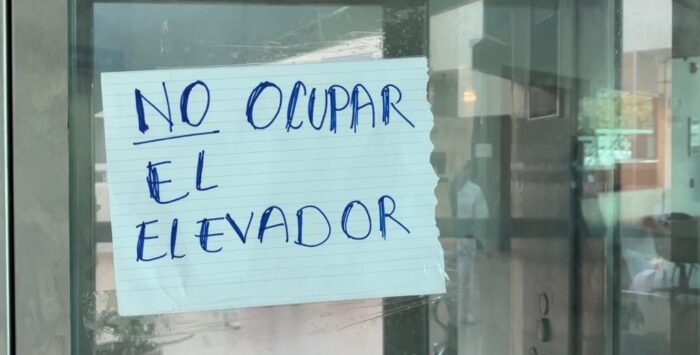 NO OCUPAR
EL
ELEVADOR